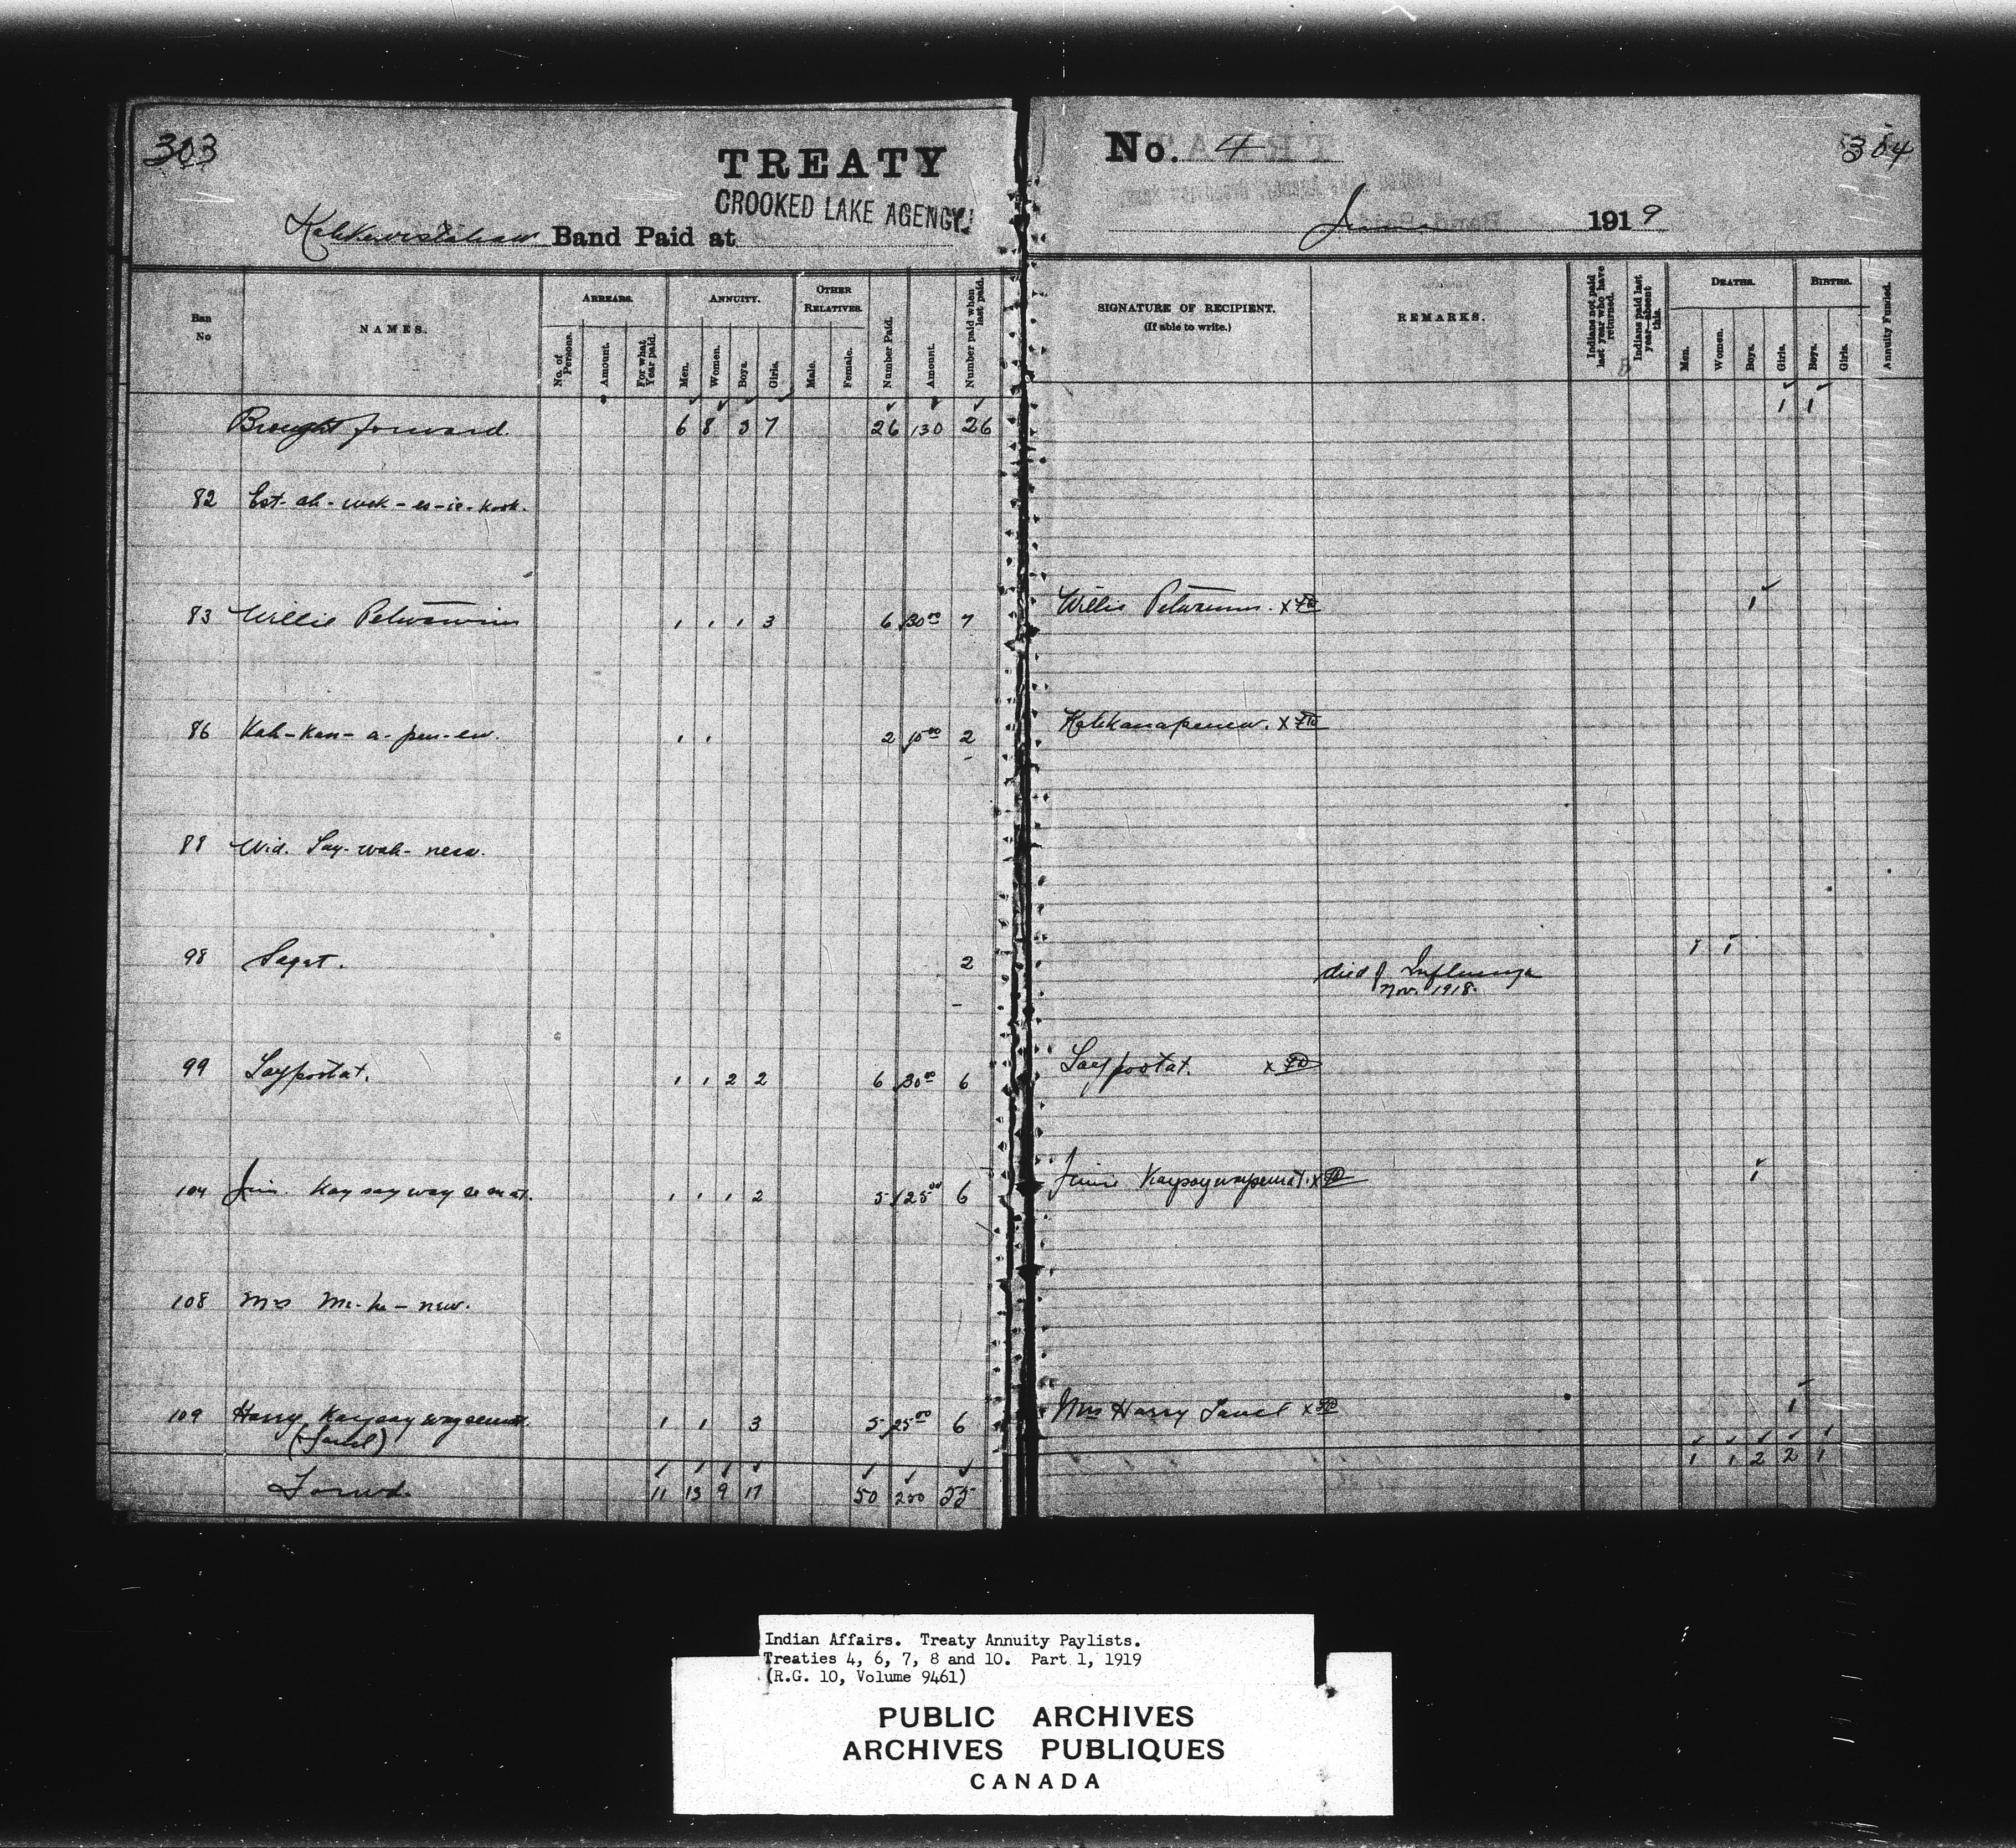 303
TREATY
CROOKED LAKE AGENCY.
Kahkewistahaw Band Paid at
No. 4
304
June 1919
Ban No
NAMES.
ARREARS.
No. of Persons.
Amount.
For what Year paid.
ANNUITY.
Men.
Women.
Boys.
Girls.
OTHER RELATIVES.
Male.
Female.
Number Paid.
Amount.
Number paid when last paid.
SIGNATURE OF RECIPIENT.
(If able to write.)
REMARKS.
Indians not paid last year who have returned.
Indians paid last year—absent this.
DEATHS.
Men.
Women.
Boys.
Girls.
BIRTHS.
Boys.
Girls.
Annuity Funded.
Brought forward. 6 8 5 7 26 130 26 1 1
82 Est-ah-wek-es-ic-kook.
83 Willie Petwawin 1 1 1 3 6 30 00 7 Willie X 1
86 Kah-Kan-a-pen-ew. 1 1 2 10 00 2 Kahkanapenew. X
88 Wid. Say-wah-new.
98 Sagat. 2 died of Influenza 1 1
Nov. 1918.
99 Saypootat. 1 1 2 2 6 30 00 6 Saypootat. X
104 Jim. 1 1 1 2 5 25 00 6 X 1
108 Mrs Me-he-new.
109 Harry 1 1 3 5 25 00 6 Mrs Harry X 1
Forwd. 11 13 9 17 50 250 55 1 1 2 2 1
Indian Affairs. Treaty Annuity Paylists.
Treaties 4, 6, 7, 8 and 10. Part 1, 1919
(R.G. 10, Volume 9461)
PUBLIC ARCHIVES
ARCHIVES PUBLIQUES
CANADA